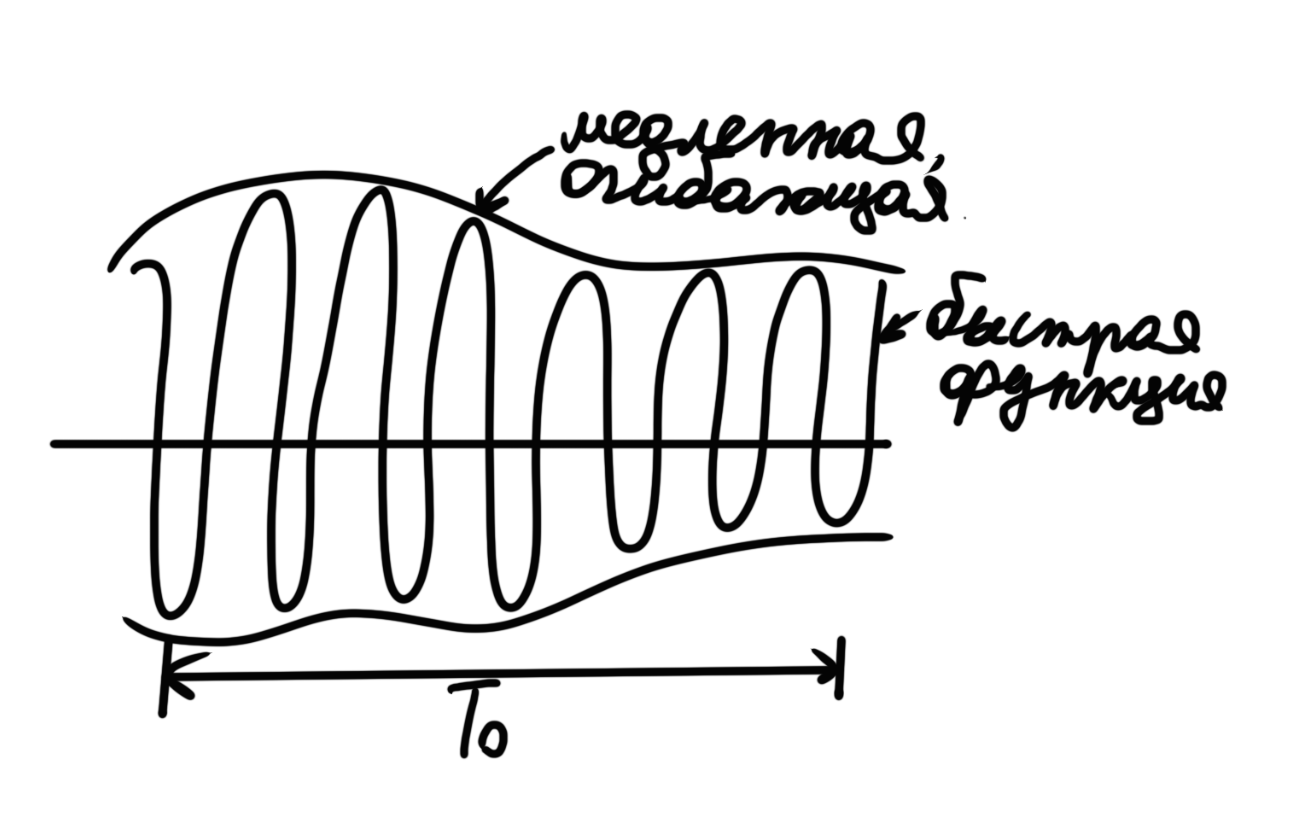 медленная,
огибающая
быстрая
функция
T₀